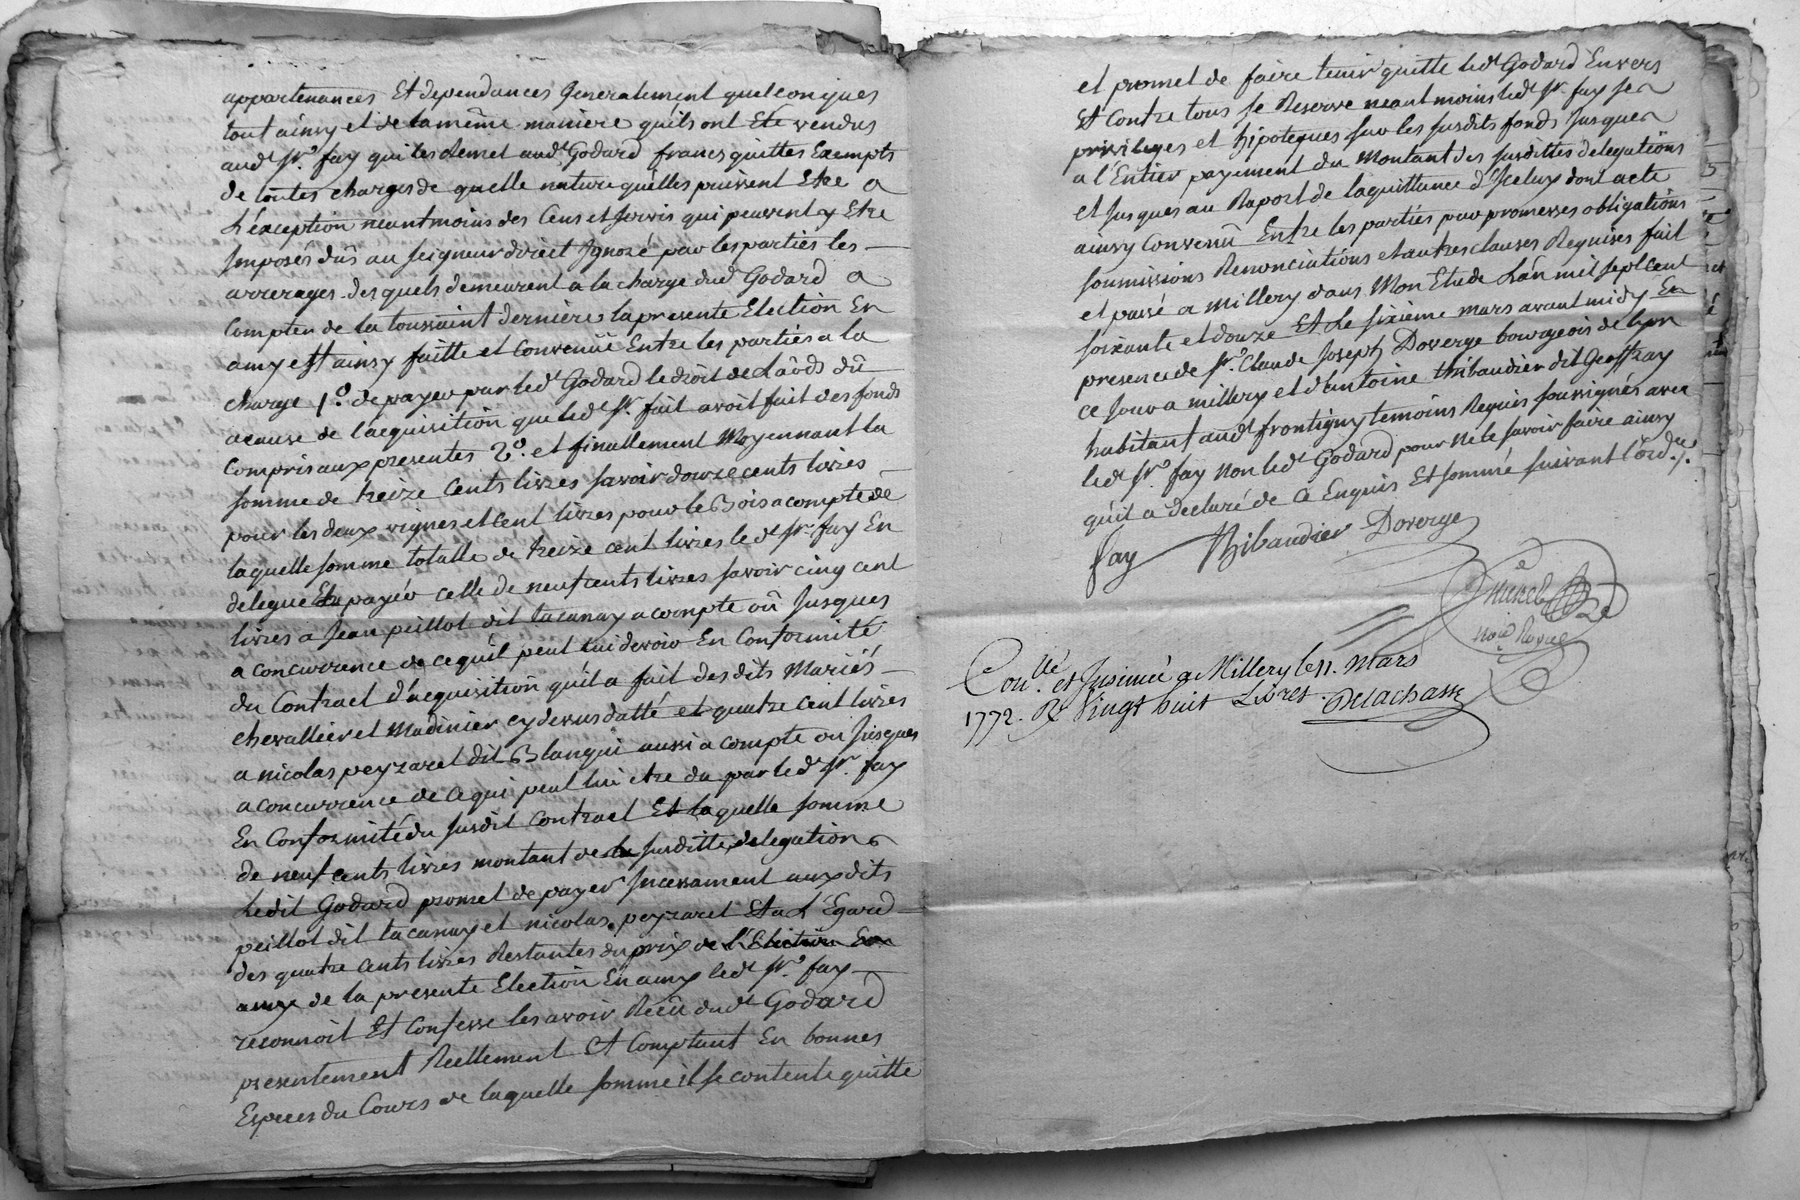 appartenances Et dependances Generalement quelconques
tout ainsy et de la même maniere quils ont Eté vendus
aud. Sr. fay qui les Remet aud. Godard francs quittes Exempts
de toutes charges de quelle nature quélles puissent Etre a
L'éxception néantmoins des Cens et servis qui peuvent y Etre
Imposés dûs au seigneur direct Ignoré par les parties les
arrerages desquels demeurent a la charge dud Godard a
Compter de la toussaint derniere la presente Election En
amy est ainsy faitte et Convenüe Entre les parties a la
charge 1°. de payer par led. Godard le droit de Laôds dû
acause de l'acquisition que led. Sr. fait avoit fait des fonds
Compris aux presentes 2°. et finallement Moyennant la
somme de treize Cents livres savoir douze cents livres
pour les deux vignes et Cent livres pour le Bois a compte de
laquelle somme totalle de treize cent livres le d. Sr. fay En
delegue payér celle de neuf cents livres savoir cinq cent
livres a Jean peillot dit tacanay a compte oû Jusques
a concurrence de ce quil peut lui devoir En Conformité
du Contract d'acquisition quil a fait des dits Mariés
chevallier et Madinier cy dessus datté et quatre cent livres
a nicolas peyzaret dit Blanqui aussi a compte ou Jusques
a concurrence de ce qui peut lui etre du par led. Sr. fay
En Conformité du susdit Contract Et laquelle somme
de neuf cents livres montant de la susditte delegation
Ledit Godard promet de payer Incessament aux dits
peillot dit tacanay et nicolas peyzaret Et a L'Egard
des quatre cents livres Restantes du prix de l'Election En
amy de la presente Election En amy led. Sr. fay
reconnoit Et Confesse les avoir Reçû dud. Godard
presentement Réellement Et Comptant En bonnes
Especes du Cours de laquelle somme il se contente quitte
et promet de faire tenir quitte led. Godard Envers
Et Contre tous se Reserve neantmoins led. Sr. fay ses
privileges et hipoteques sur les susdits fonds Jusques
a l'Entier payement du Montant des susdittes delegations
et Jusques au Raport de la quittance d'Iceluy dont acte
ainsy Convenû Entre les parties par promesses obligations
soumissions Renonciations et autres clauses Requises fait
et passé a Millery dans Mon Etude L'an mil sept cent
soixante et douze Et Le sixieme mars avant midy En
presence de Sr. Claude Joseph Doverge bourgeois de lyon
ce Jour a millery et d'Antoine thibaudier dit Geoffray
habitant aud. frontigny temoins Requis soussignés avec
led. Sr. fay Non led. Godard pour ne le savoir faire ainsy
qu'il a declaré de Ce Enquis Et sommé suivant l'ord.
fay Thibaudier Doverge
Not. Royal
Con.llé et Insinué a Millery le 11. Mars
1772. R. Vingt huit Livres. Delachasse